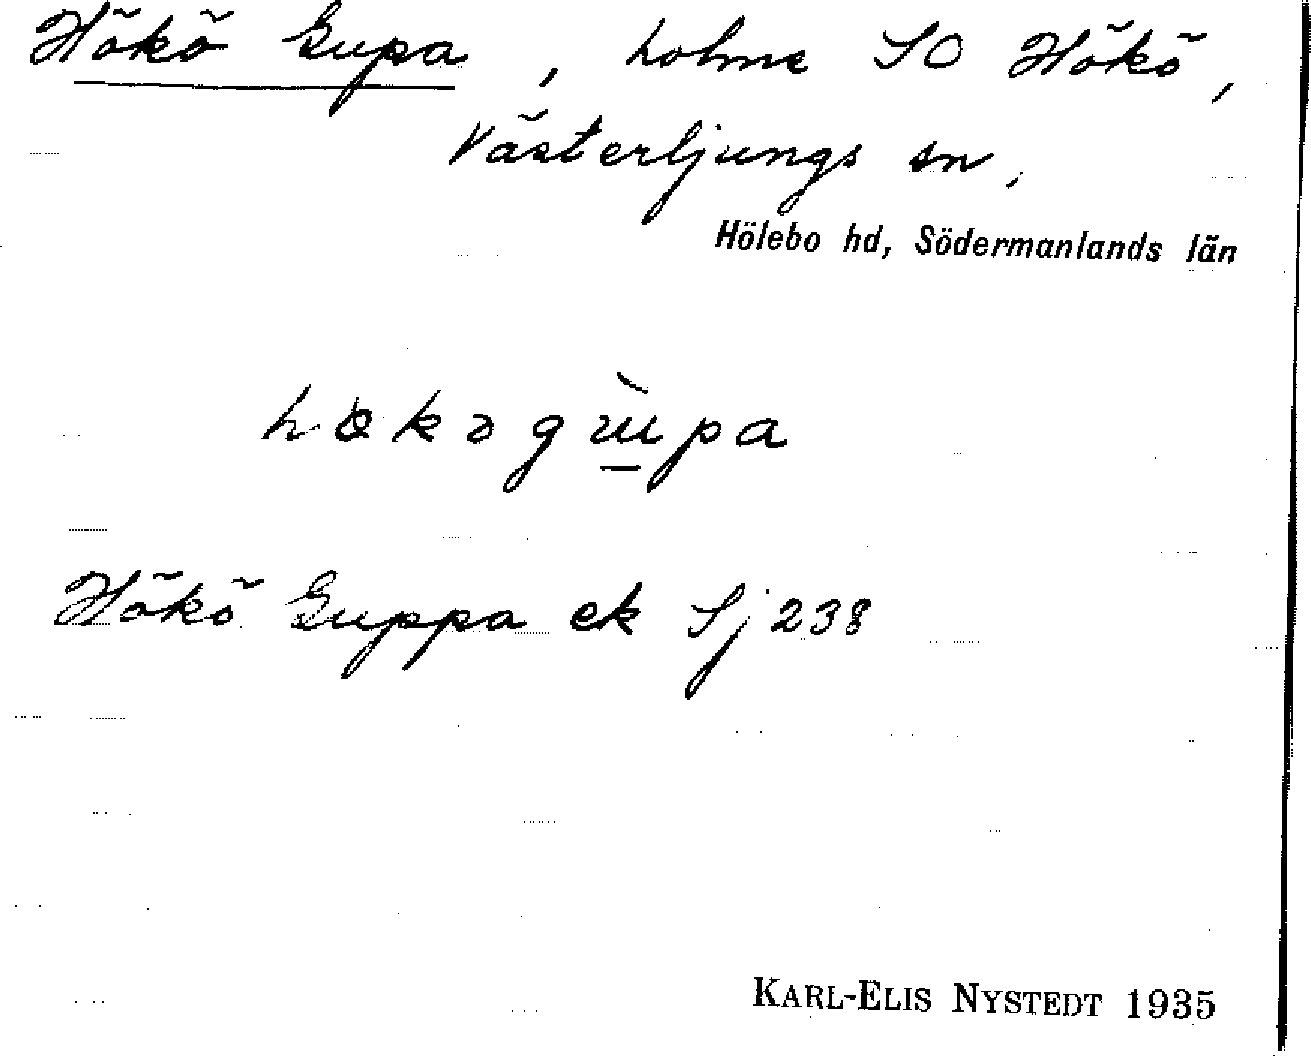 Hökö Gupa, holme SO Hökö,
Västerljungs sn,
Hölebo hd, Södermanlands län
Hökö Guppa ek Sj 238
KARL-ELIS NYSTEDT 1935